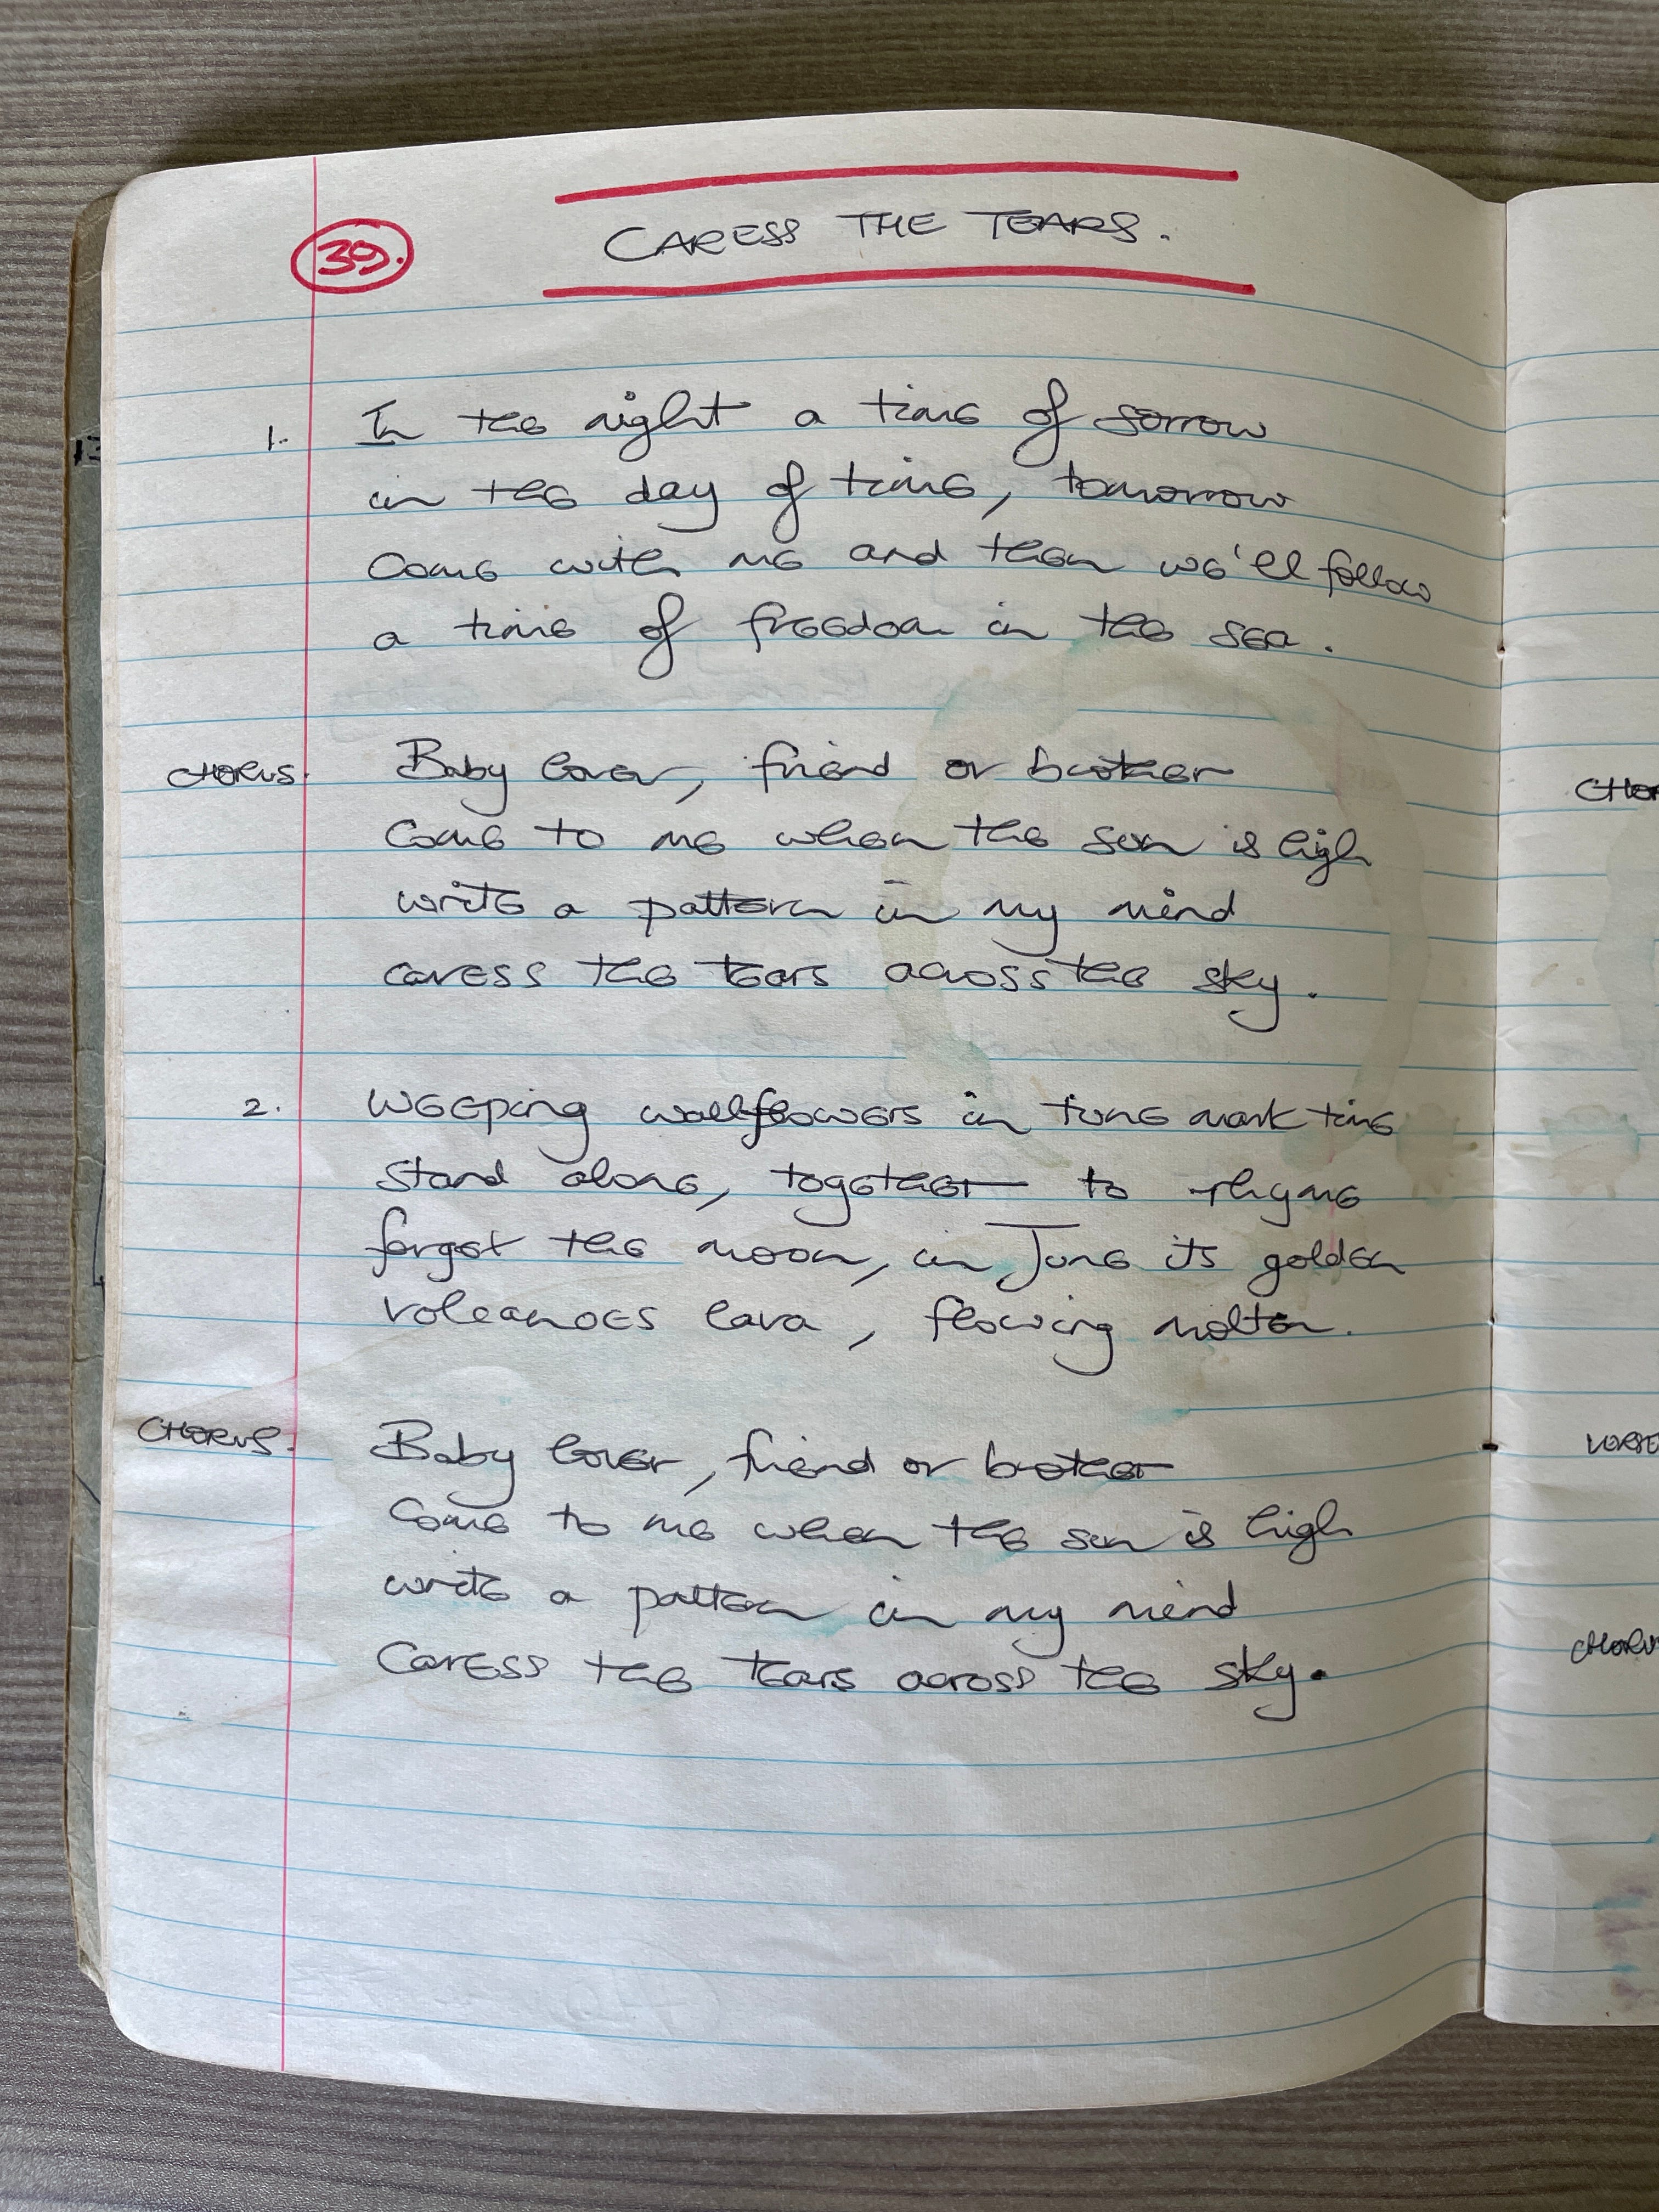 39.
CARESS THE TEARS.
1. In the night a time of sorrow
in the day of time, tomorrow
Come with me and then we'll follow
a time of freedom in the sea.
CHORUS. Baby lover, friend or brother
Come to me when the sun is high
write a pattern in my mind
caress the tears across the sky.
2. Weeping wallflowers in tune mark time
stand alone, together to rhyme
forget the moon, in June its golden
volcanoes lava, flowing molten.
CHORUS. Baby lover, friend or brother
Come to me when the sun is high
write a pattern in my mind
Caress the tears across the sky.
13
CHOR
VERSE
CHORU